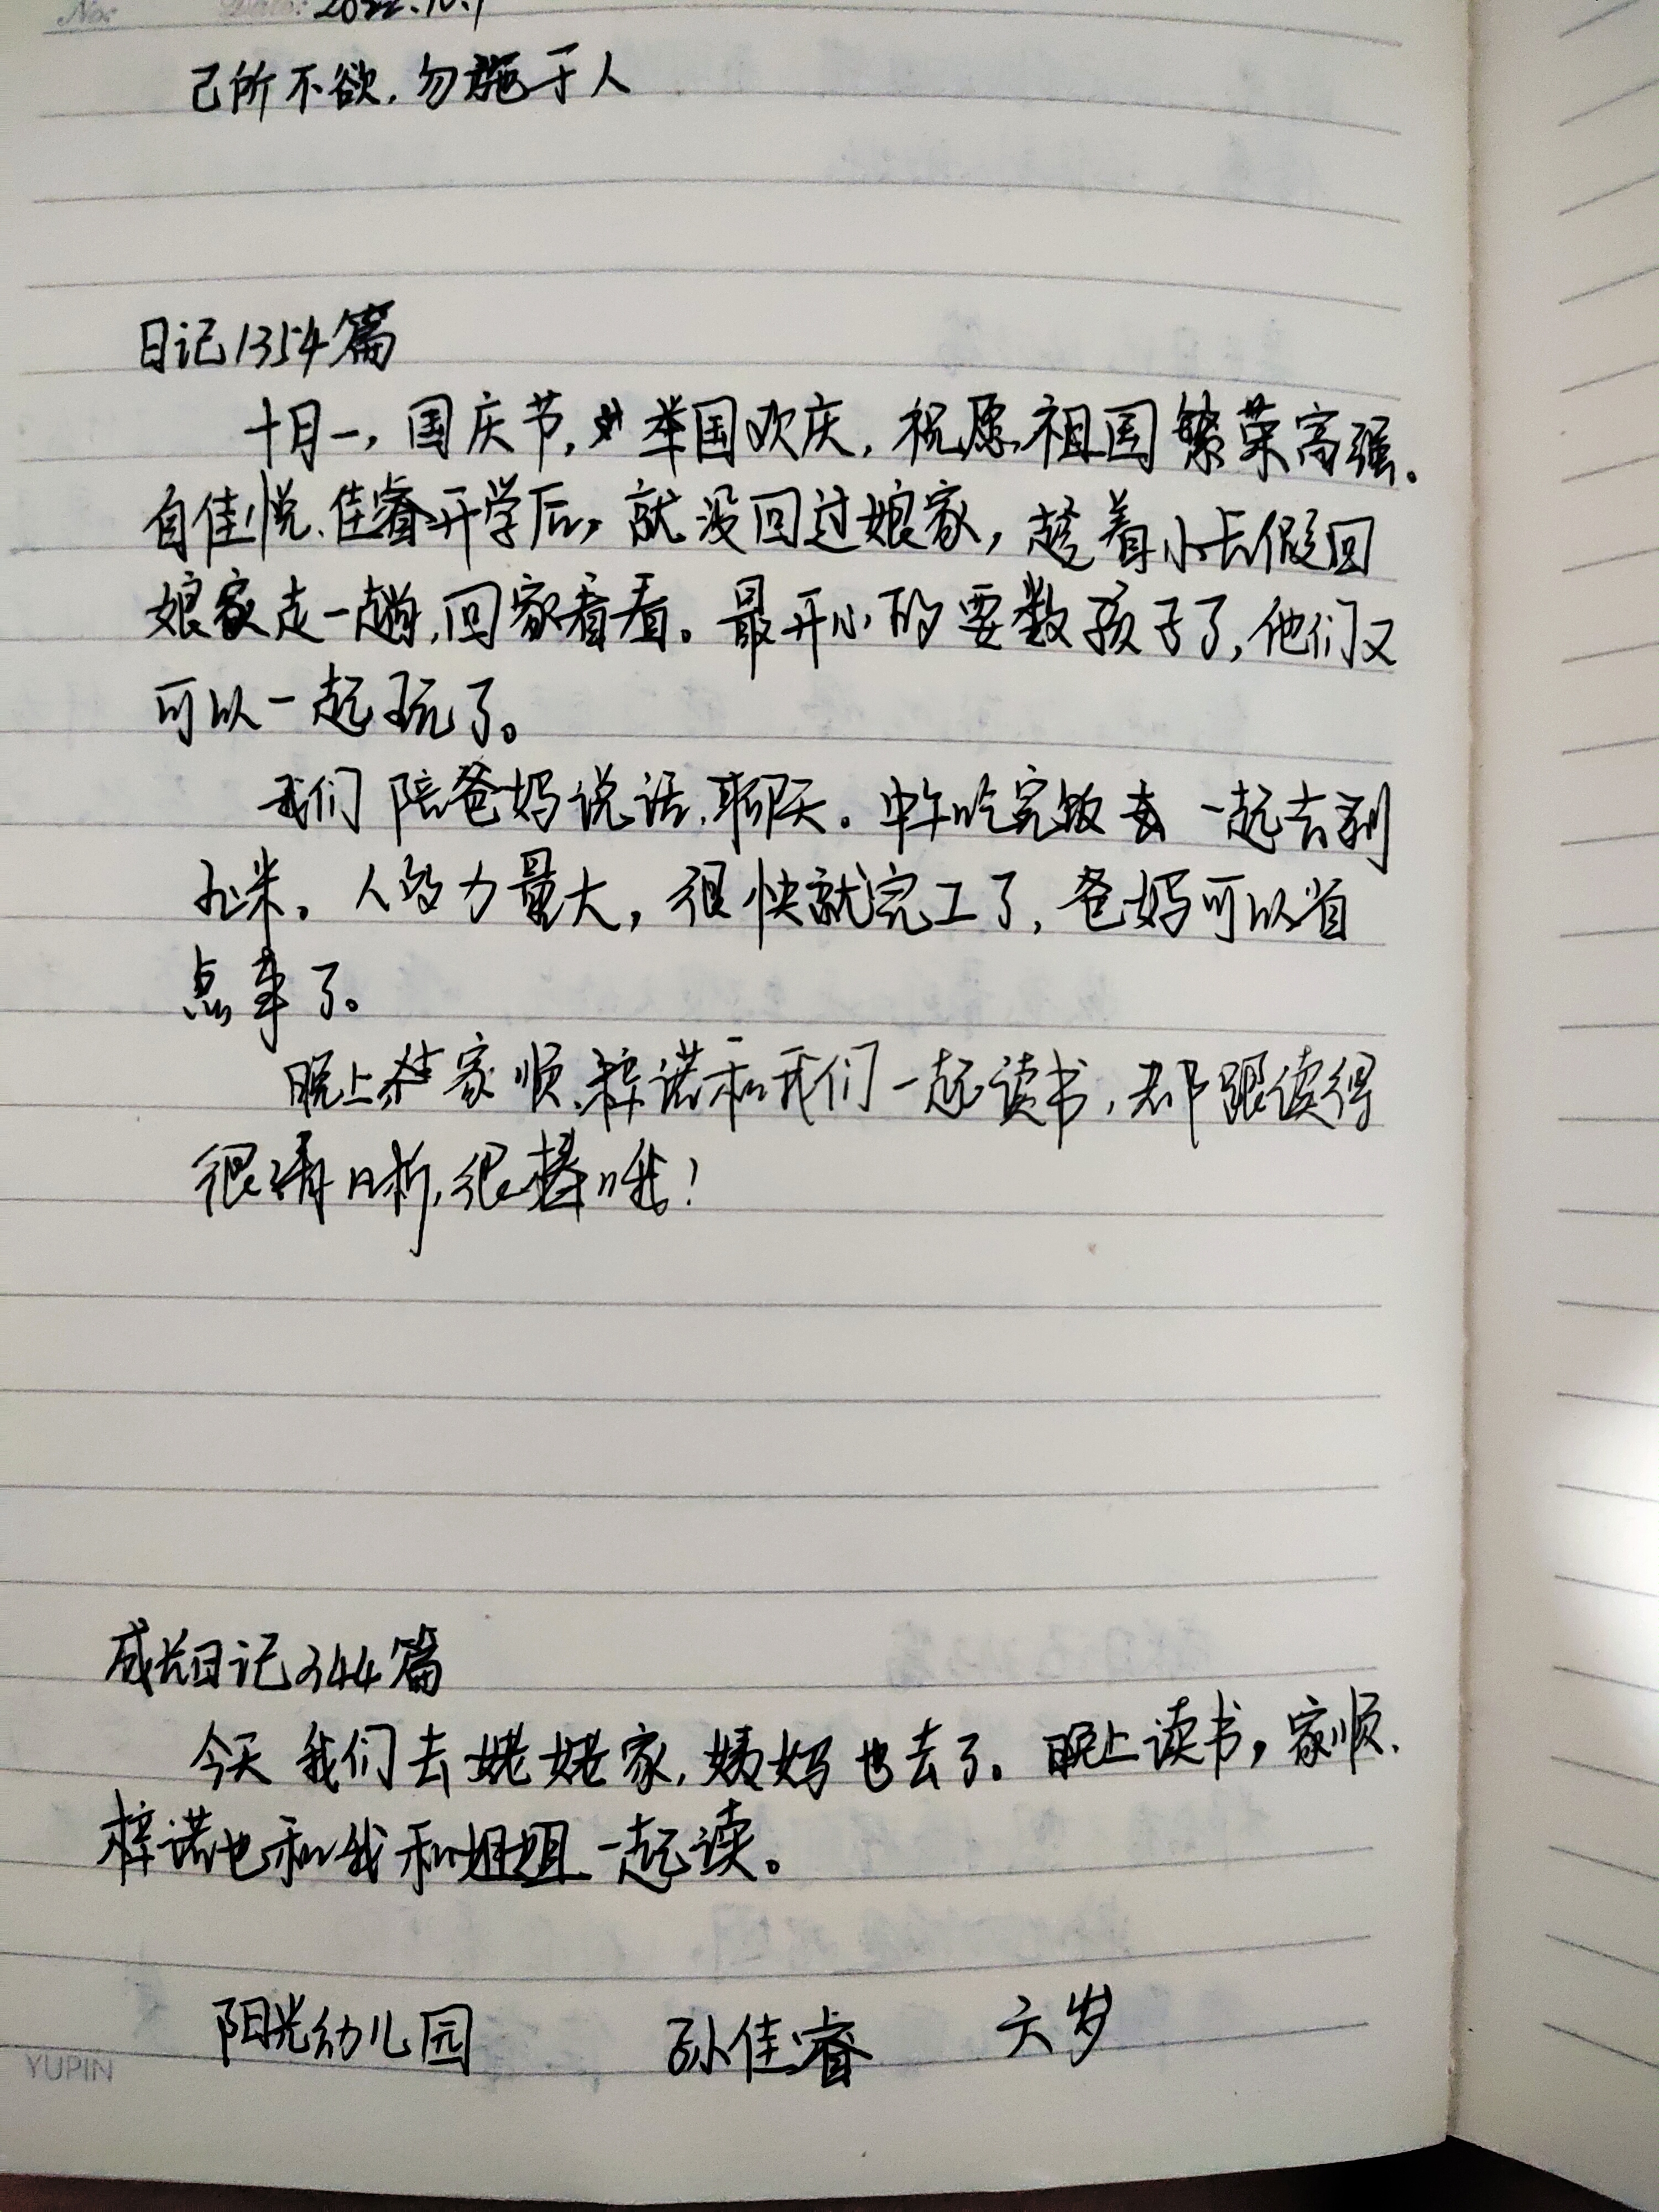 No: Date: 2022.10.1
己所不欲,勿施于人
日记1354篇
十月一,国庆节,举国欢庆,祝愿祖国繁荣富强。
自佳悦、佳睿开学后,就没回过娘家,趁着小长假回
娘家走一趟,回家看看。最开心的要数孩子了,他们又
可以一起玩了。
我们陪爸妈说话,聊天。中午吃完饭一起去剥
玉米。人多力量大,很快就完工了,爸妈可以省
点事了。
晚上家顺、梓诺和我们一起读书,都跟读得
很清晰,很棒哦!
成长日记344篇
今天我们去姥姥家,姨妈也去了。晚上读书,家顺、
梓诺也和我和姐姐一起读。
阳光幼儿园 孙佳睿 六岁
YUPIN